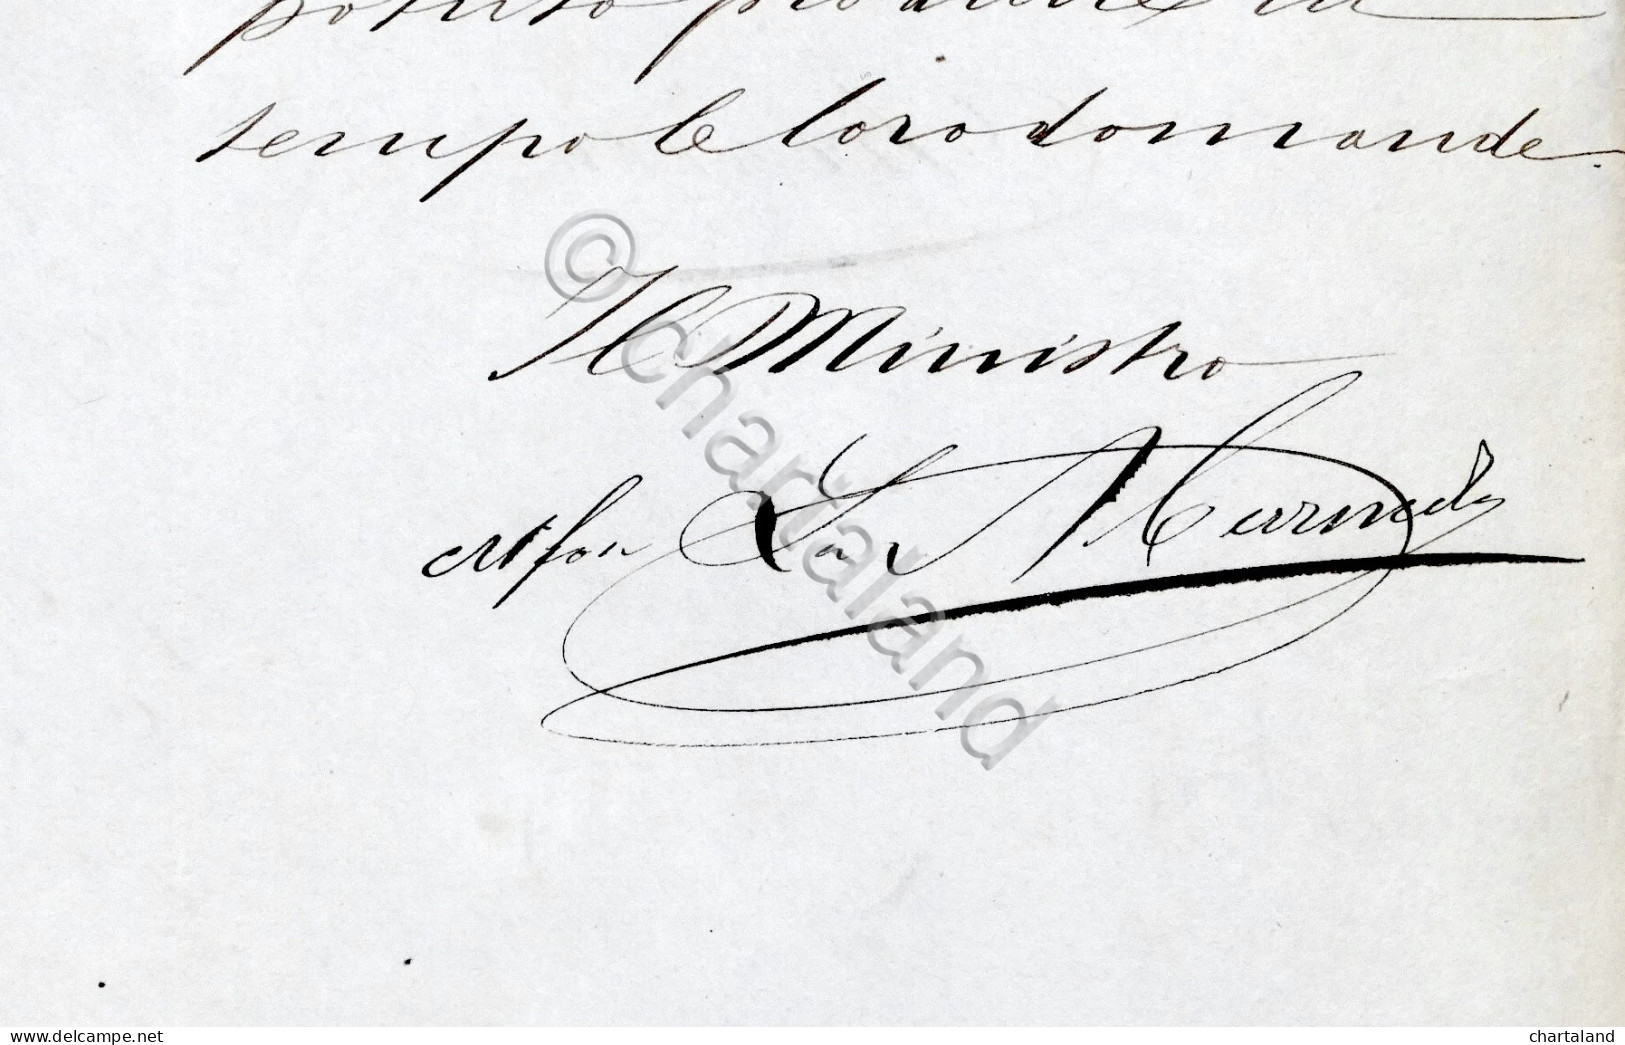 potuto produrre in
tempo le loro domande.
Il Ministro
Alfon La Marmora
© chartaland
www.delcampe.net
chartaland